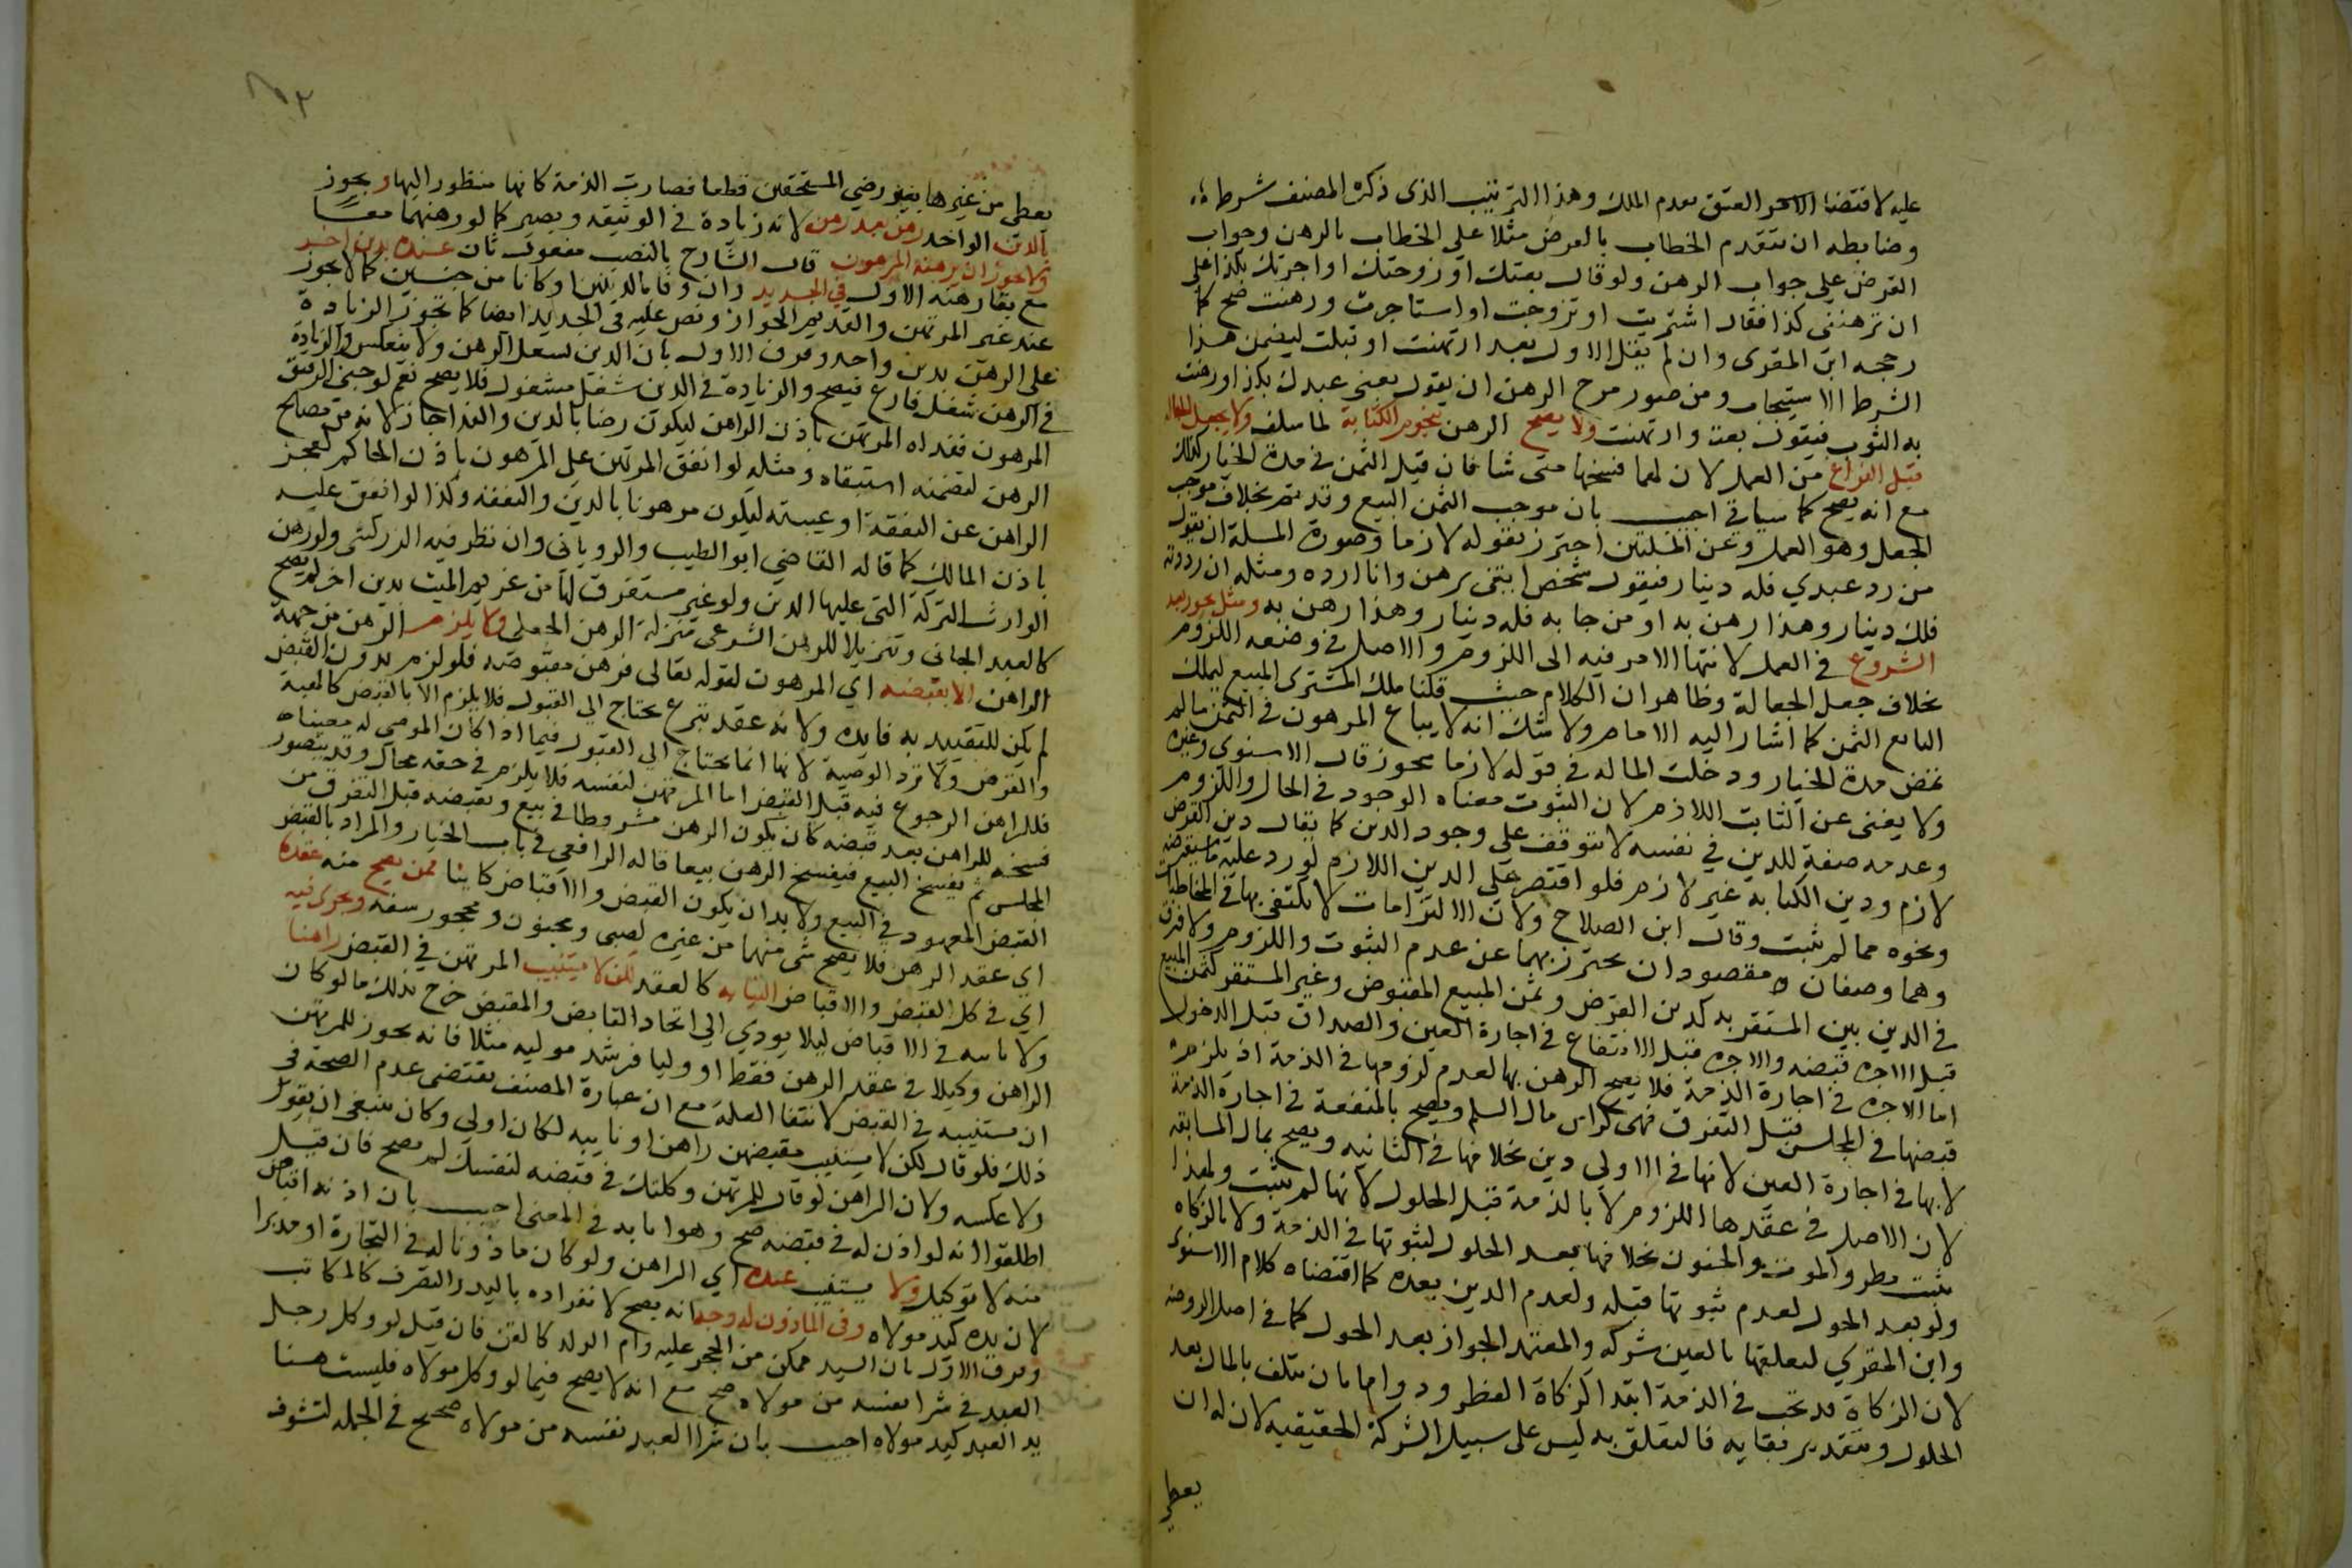 عليه لاقتضا العتق تقدم الملك وهذا الترتيب الذى ذكره المصنف شرط
وضابطه ان يتقدم الخطاب بالعرض مثلا على الخطاب بالرهن وجواب
القرض على جواب الرهن ولو قال بعتك او زوجتك او اجرتك بكذا على
ان ترهننى كذا فقال اشتريت او تزوجت او استاجرت ورهنت صح كما
رجحه ابن المقرى وان لم يقل الاول بعد ارتهنت او قبلت ليضمن هذا
الشرط الاستيجاب ومن صور مزج الرهن ان يقول بعنى عبدك بكذا ورهنت
به الثوب فيقول بعت وارتهنت ولا يصح الرهن بنجوم الكتابة لما سلف ولا بجعل الجعالة
قبل الفراغ من العمل لان لهما فسخها متى شا فان قيل الثمن فى مدة الخيار كذلك
مع انه يصح كما سياتي اجيب بان موجب الثمن البيع وقد تم بخلاف موجب
الجعل وهو العمل وعن المسلتين احترز بقوله لازما وصورة المسلة ان يقول
من رد عبدي فله دينار فيقول شخص ايتنى برهن وانا ارده ومثله ان رددته
فلك دينار وهذا رهن به او من جا به فله دينار وهذا رهن به ومثل يجوز بعد
الشروع في العمل لانتها الامر فيه الى اللزوم والاصل فى وضعه اللزوم
بخلاف جعل الجعالة وظاهر ان الكلام حيث قلنا ملك المشترى المبيع ليملك
البايع الثمن كما اشار اليه الامام ولا شك انه لا يباع المرهون فى الثمن ما لم
تمض مدة الخيار ودخلت المالة فى قوله لازما يجوز قال الاسنوى وغيره
ولا يغنى عن الثابت اللازم لان الثبوت معناه الوجود فى الحال واللزوم
وعدمه صفة للدين في نفسه لا تتوقف على وجود الدين كما يقال دين القرض
لازم ودين الكتابة غير لازم فلو اقتصر على الدين اللازم لورد عليه ما سيقرضه
ونحوه مما لم يثبت وقال ابن الصلاح ولان الالتزامات لا يكتفى بها في المخاطبات
وهما وصفان مقصودان يحترز بهما عن عدم الثبوت واللزوم ولا فرق
فى الدين بين المستقر به كدين القرض وثمن المبيع المقبوض وغير المستقر كثمن المبيع
قبل قبضه والاجره قبل الانتفاع فى اجارة العين والصداق قبل الدخول
اما الاجره فى اجارة الذمة فلا يصح الرهن بها لعدم لزومها فى الذمة اذ يلزمه
قبضها فى المجلس قبل التفرق فهى كراس مال السلم ويصح بالمنفعة فى اجارة الذمة
لا بها فى اجارة العين لانها فى الاولى دين بخلافها فى الثانيه ويصح بمال المسابقه
لان الاصل فى عقدها اللزوم لا بالذمة قبل الحلول لانها لم تثبت ولهذا
تثبت بطرو الموت والجنون بخلافها بعد الحلول لثبوتها فى الذمة ولا بالزكاه
ولو بعد الحول لعدم ثبوتها قبله ولعدم الدين بعده كما اقتضاه كلام الاسنوى
وابن المقري لتعلقها بالعين شركه والمعتمد الجواز بعد الحول كما فى اصل الروضه
لان الزكاة قد تجب فى الذمة ابتدا كزكاة الفطر ودواما بان تلف المال بعد
الحلول وبتقدير بقايه فالتعلق به ليس على سبيل الشركة الحقيقيه لان له ان
يعطي
يعطى من غيرها بغير رضي المستحقين قطعا فصارت الذمة كانها منظور اليها ويجوز
بالدين الواحد رهن بعد رهن لانه زيادة فى الوثيقه ويصير كما لو رهنهما معا
ولا يجوز ان يرهنه المرهون قال الشارح بالنصب مفعول ثان عنده بدين اخر
مع بقا رهنه الاول في الجديد وان وفا بالدينين او كانا من جنسين كما لا يجوز
عند غير المرتهن والقديم الجواز ونص عليه فى الجديد ايضا كما تجوز الزيادة
على الرهن بدين واحد وفرق الاول بان الدين يشغل الرهن ولا ينعكس والزيادة
فى الرهن شغل فارغ فيصح والزيادة فى الدين شغل مشغول فلا يصح نعم لو جنى الرقيق
المرهون ففداه المرتهن باذن الراهن ليكون رهنا بالدين والفدا جاز لانه من مصالح
الرهن لتضمنه استبقاه ومثله لو انفق المرتهن على المرهون باذن الحاكم لعجز
الراهن عن النفقة او غيبته ليكون مرهونا بالدين والنفقه وكذا لو انفق عليه
باذن المالك كما قاله القاضي ابو الطيب والروياني وان نظر فيه الزركشى ولو رهن
الوارث التركة التى عليها الدين ولو غير مستغرق لها من غريم الميت بدين اخر لم يصح
كالعبد الجانى وتنزيلا للرهن الشرعى منزلة الرهن الجعلي ولا يلزم الرهن من جهة
الراهن الا بقبضه اي المرهون لقوله تعالى فرهن مقبوضه فلو لزم بدون القبض
لم يكن للتقييد به فايده ولانه عقد تبرع يحتاج الى القبول فلا يلزم الا بالقبض كالهبة
والقرض ولا ترد الوصية لانها انما تحتاج الى القبول فيما اذا كان الموصى له معينا
فللراهن الرجوع فيه قبل القبض اما المرتهن لنفسه فلا يلزم فى حقه بحال وقد يتصور
فسخه للراهن بعد قبضه كان يكون الرهن مشروطا في بيع وتقبضه قبل التفرق من
المجلس ثم يفسخ البيع فيفسخ الرهن تبعا قاله الرافعي في باب الخيار والمراد بالقبض
القبض المعهود في البيع ولا بد ان يكون القبض والاقباض كاينا ممن يصح منه عقده
اي عقد الرهن فلا يصح شى منهما من غيره لصبى ومجنون ومحجور سفه ويجرى فيه
اي فى كل القبض والاقباض النيابه كالعقد لكن لا يستنيب المرتهن في القبض راهنا
ولا نايبه فى الاقباض ليلا يودي الى اتحاد القابض والمقبض خرج بذلك ما لو كان
الراهن وكيلا فى عقد الرهن فقط او وليا فرشد موليه مثلا فانه يجوز للمرتهن
ان يستنيبه فى القبض لانتفا العلة مع ان عبارة المصنف تقتضى عدم الصحة فى
ذلك فلو قال لكن لا يستنيب مقبضهن راهن او نايبه لكان اولى وكان ينبغى ان يقول
ولا عكسه ولان الراهن لو قال للمرتهن وكلتك فى قبضه لنفسك لم يصح فان قيل
اطلقوا انه لو اذن له فى قبضه صح وهو انابه في المعنى اجيب بان اذنه اقباض
منه لا توكيل ولا يستنيب عبده اي الراهن ولو كان ماذونا له فى التجارة او مدبرا
لان يده كيد مولاه وفى الماذون له وجه انه يصح لانفراده باليد والتصرف كالمكاتب
وفرق الاول بان السيد ممكن من الحجر عليه وام الولد كالقن فان قيل لو وكل رجل
العبد في شرا نفسه من مولاه صح مع انه لا يصح فيما لو وكل مولاه فليست هنا
يد العبد كيد مولاه اجيب بان شرا العبد نفسه من مولاه صحيح فى الجمله لتشوف